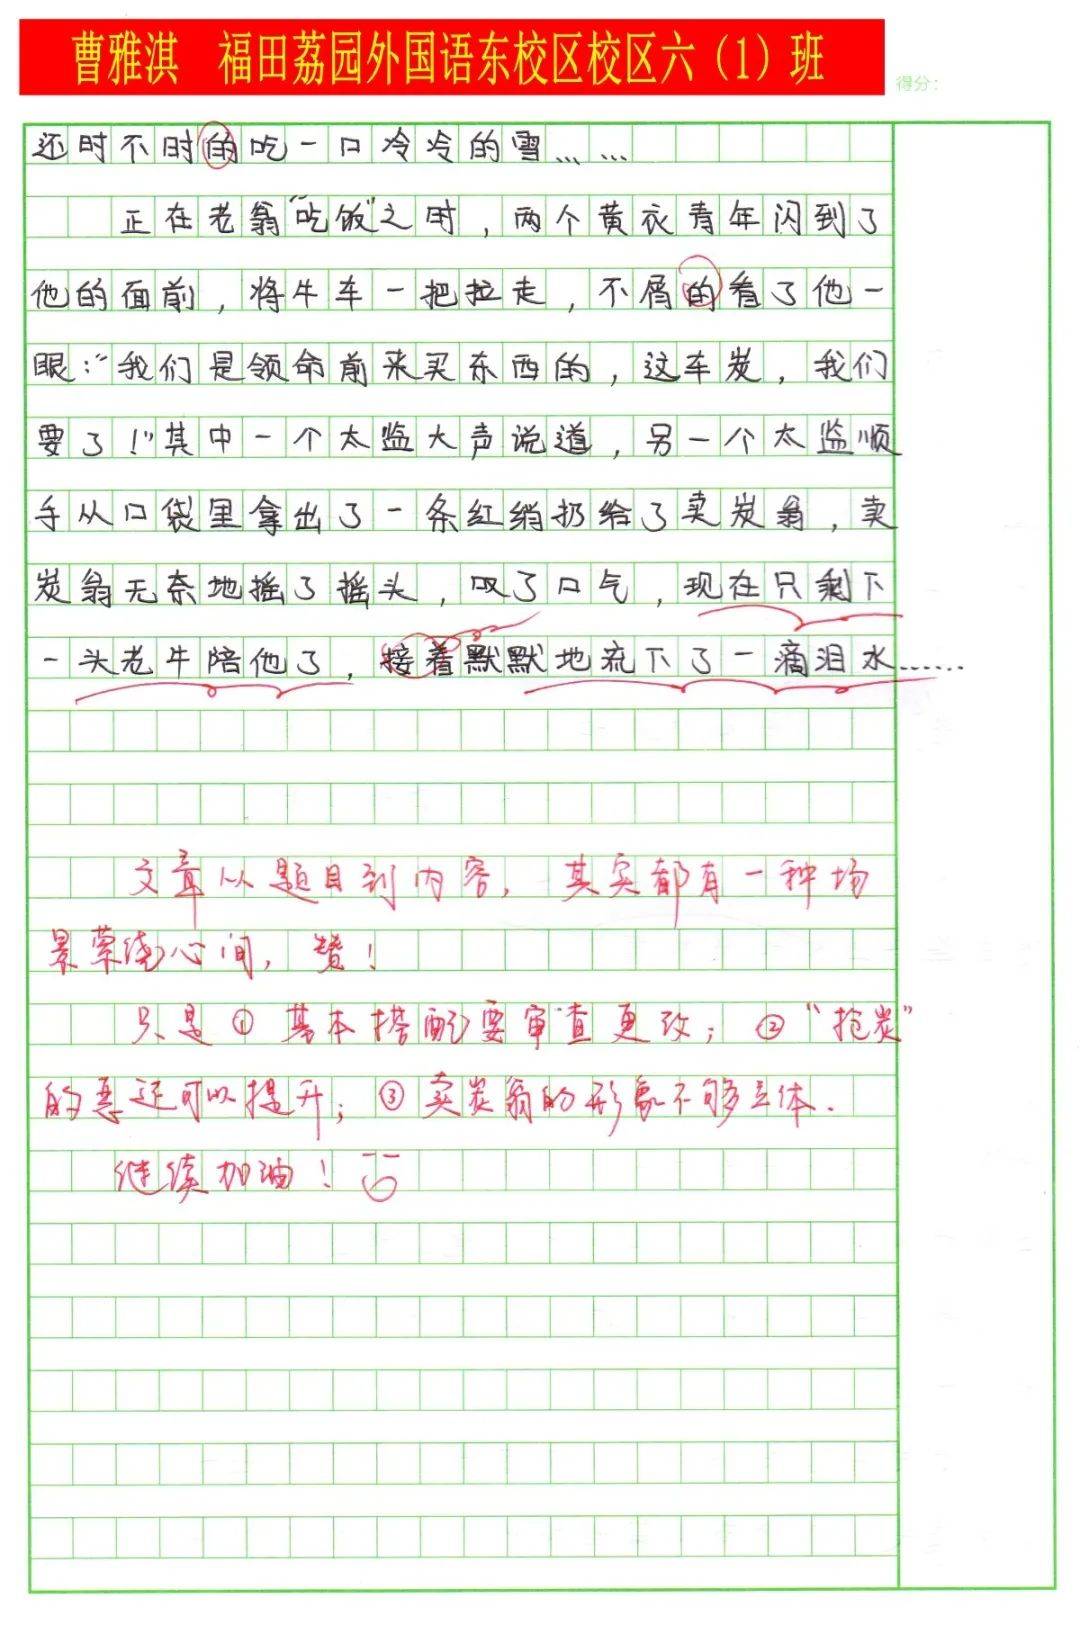 曹雅淇 福田荔园外国语东校区校区六（1）班
得分：
还时不时的吃一口冷冷的雪……
正在老翁“吃饭”之时，两个黄衣青年闪到了
他的面前，将牛车一把拉走，不屑的看了他一
眼：“我们是领命前来买东西的，这车炭，我们
要了！”其中一个太监大声说道，另一个太监顺
手从口袋里拿出了一条红绡扔给了卖炭翁，卖
炭翁无奈地摇了摇头，叹了口气，现在只剩下
一头老牛陪他了，接着默默地流下了一滴泪水……
文章从题目到内容，其实都有一种场
景萦绕心间，赞！
只是①基本搭配要审查更改；②“抢炭”
的意还可以提升；③卖炭翁的形象不够立体.
继续加油！